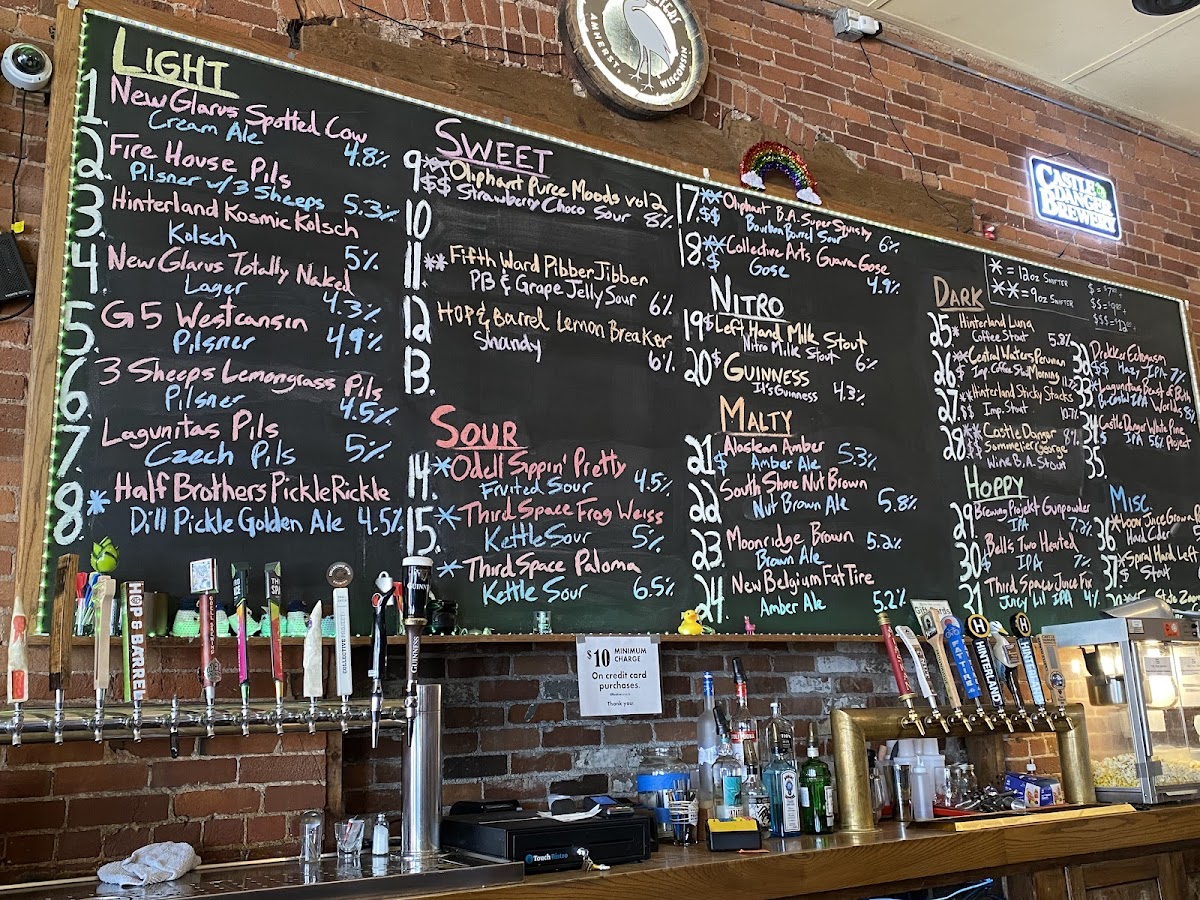 LIGHT
1. New Glarus Spotted Cow
Cream Ale 4.8%
2. Fire House Pils
Pilsner w/3 Sheeps 5.3%
3. Hinterland Kosmic Kolsch
Kolsch 5%
4. New Glarus Totally Naked
Lager 4.3%
5. G5 Westcansin
Pilsner 4.9%
6. 3 Sheeps Lemongrass Pils
Pilsner 4.5%
7. Lagunitas Pils
Czech Pils 5%
8. * Half Brothers Pickle Rickle
Dill Pickle Golden Ale 4.5%
SWEET
9. ** Oliphant Puree Moods vol 2
$$ Strawberry Choco Sour 8%
10
11. ** Fifth Ward Pibber Jibber
PB & Grape Jelly Sour 6%
12 Hop & Barrel Lemon Breaker
Shandy 6%
13.
SOUR
14. * Odell Sippin' Pretty
Fruited Sour 4.5%
15. * Third Space Frog Weiss
Kettle Sour 5%
* Third Space Paloma
Kettle Sour 6.5%
17. ** Oliphant B.A. Super Squishy
$$ Bourbon Barrel Sour 6%
18. ** Collective Arts Guava Gose
$ Gose 4.9%
NITRO
19 $ Left Hand Milk Stout
Nitro Milk Stout 6%
20 $ Guinness
It's Guinness 4.3%
MALTY
21. Alaskan Amber
$ Amber Ale 5.3%
22. South Shore Nut Brown
Nut Brown Ale 5.8%
23. Moonridge Brown
Brown Ale 5.2%
24. New Belgium Fat Tire
Amber Ale 5.2%
* = 12oz Snifter
** = 9oz Snifter
DARK
25. * Hinterland Luna
Coffee Stout 5.8%
26. ** Central Waters Peruvian
$ Imp. Coffee Stout Morning
27. ** Hinterland Sticky Stacks
$$ Imp. Stout 10.7%
28. ** Castle Danger 8%
Wine B.A. Stout
HOPPY
29. Brewing Projekt Gunpowder
IPA 7.2%
30. Bell's Two Hearted
$ IPA 7%
31. Third Space Juice Fix
Juicy Lil IPA 4%
32. Drekker Ectogasm
$$ Hazy IPA 7%
33. Lagunitas
IPA 8%
34. Castle Danger White Pine
$ IPA Project
35.
MISC
36
Hard Cider
37. Spiral Hard
$ Stout
AMHERST, WISCONSIN
CASTLE DANGER BREWERY
$10 MINIMUM CHARGE
On credit card
purchases.
Thank you
HOP & BARREL
GUINNESS
GUINNESS
COLLECTIVE
FAT TIRE
HINTERLAND
TouchBistro